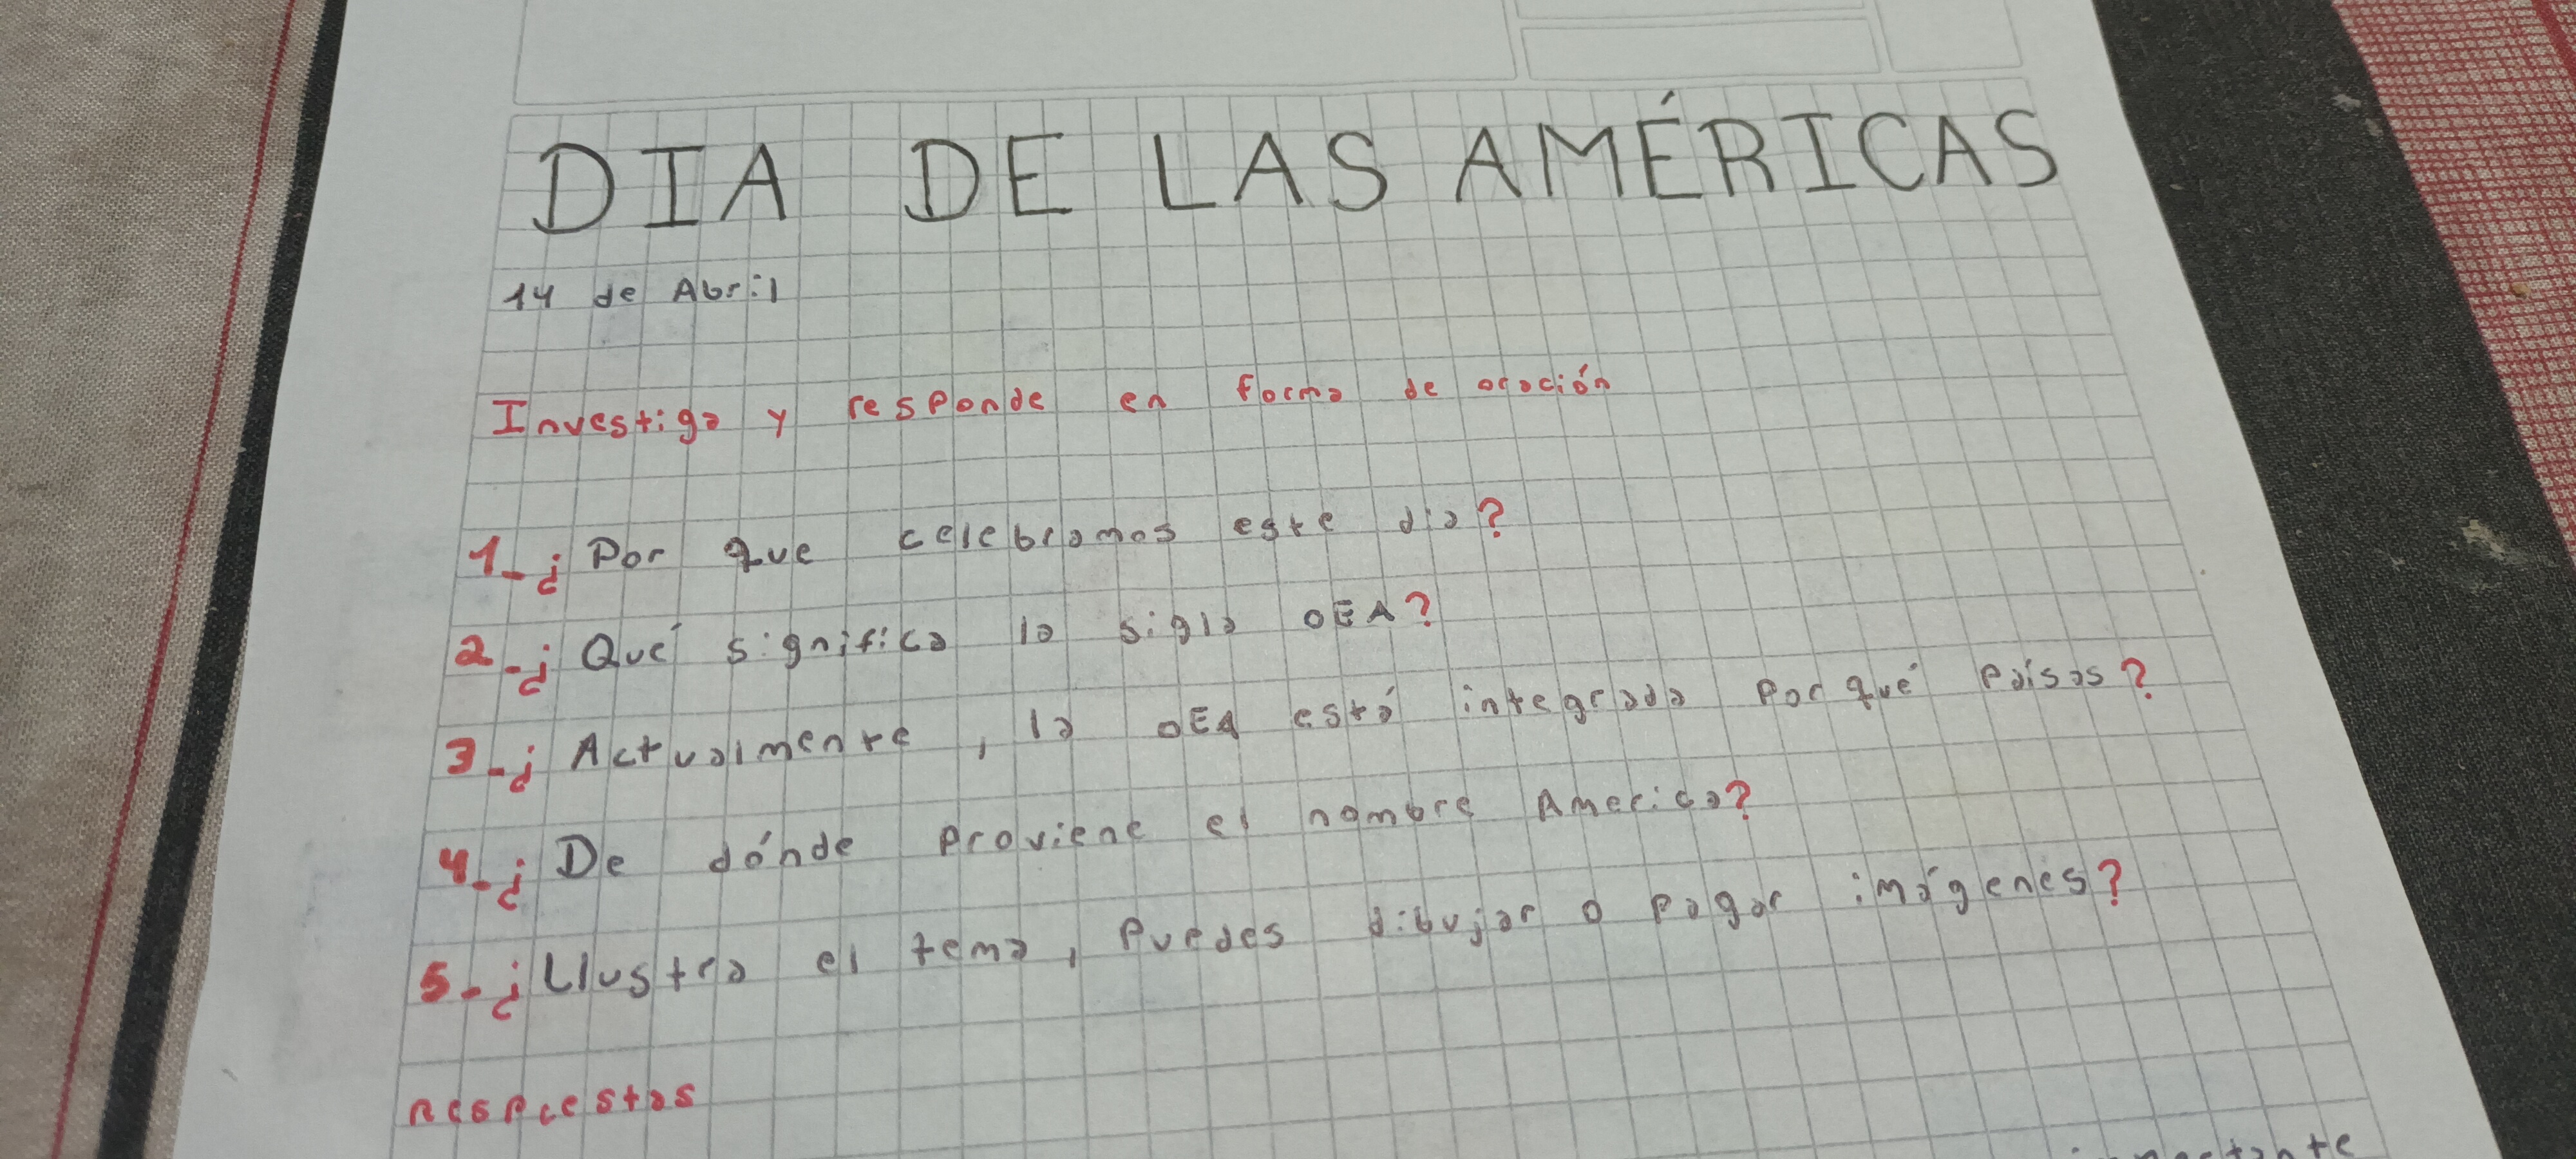 DIA DE LAS AMÉRICAS
14 de Abril
Investiga y responde en forma de oración
1-¿Por que celebramos este dia?
2-¿Qué significa la sigla OEA?
3-¿Actualmente, la OEA está integrada por qué países?
4-¿De dónde proviene el nombre America?
5-¿Llustra el tema, Puedes dibujar o pagar imágenes?
Respuestas